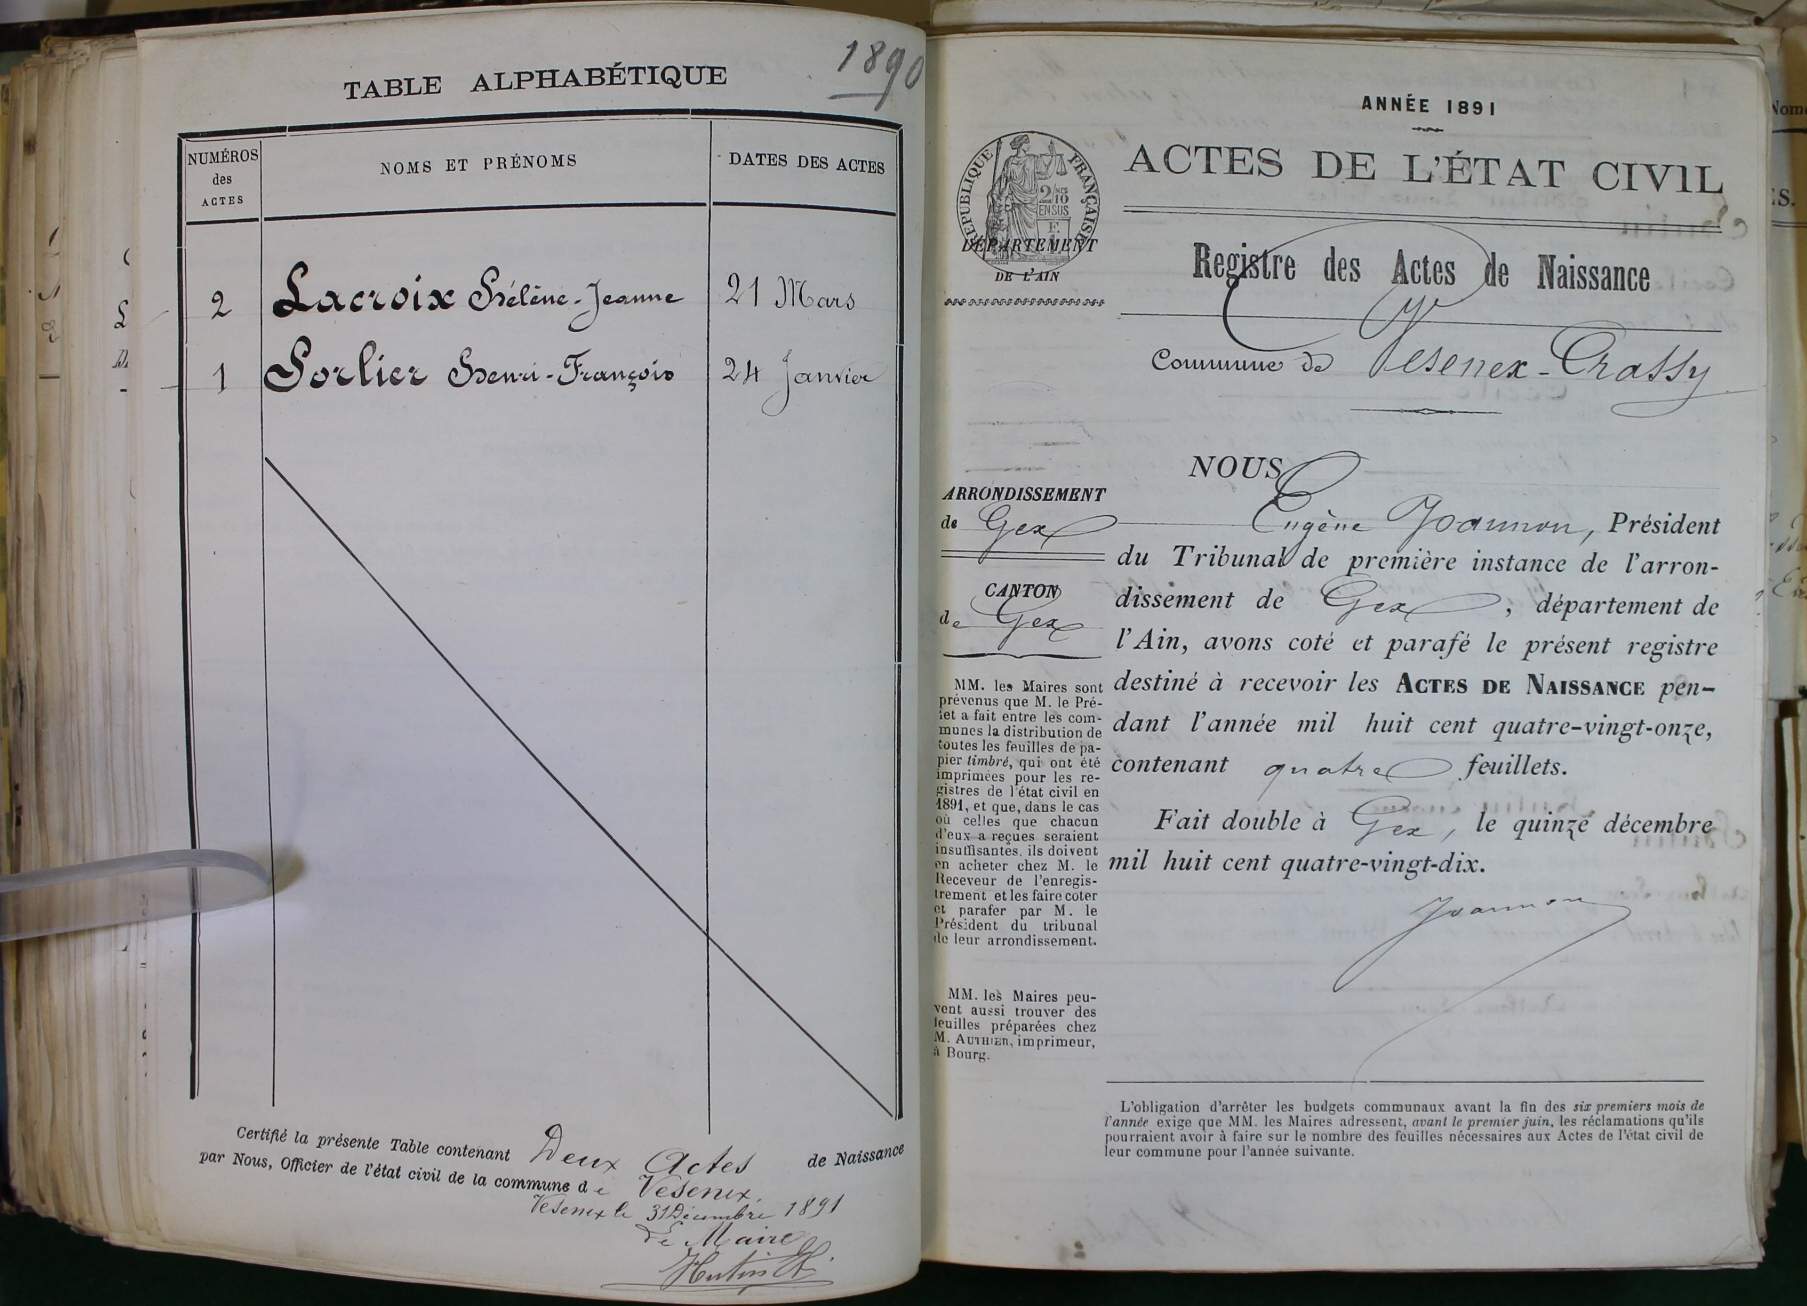 1890
TABLE ALPHABÉTIQUE
NUMÉROS
des
ACTES
NOMS ET PRÉNOMS
DATES DES ACTES
2 Lacroix Hélène-Jeanne 21 Mars
1 Sorlier Henri-François 24 Janvier
Certifié la présente Table contenant Deux Actes de Naissance
par Nous, Officier de l'état civil de la commune de Vesenex.
Vesenex le 31 Décembre 1891
Le Maire
Hutin
ANNÉE 1891
RÉPUBLIQUE FRANÇAISE
2/10
EN SUS
DÉPARTEMENT
DE L'AIN
ACTES DE L'ÉTAT CIVIL
Registre des Actes de Naissance
Commune de Vesenex-Crassy
ARRONDISSEMENT
de Gex
CANTON
de Gex
MM. les Maires sont
prévenus que M. le Pré-
fet a fait entre les com-
munes la distribution de
toutes les feuilles de pa-
pier timbré, qui ont été
imprimées pour les re-
gistres de l'état civil en
1891, et que, dans le cas
où celles que chacun
d'eux a reçues seraient
insuffisantes, ils doivent
en acheter chez M. le
Receveur de l'enregis-
trement et les faire coter
et parafer par M. le
Président du tribunal
de leur arrondissement.
MM. les Maires peu-
vent aussi trouver des
feuilles préparées chez
M. AUTHIER, imprimeur,
à Bourg.
NOUS
Eugène Joannon, Président
du Tribunal de première instance de l'arron-
dissement de Gex, département de
l'Ain, avons coté et parafé le présent registre
destiné à recevoir les ACTES DE NAISSANCE pen-
dant l'année mil huit cent quatre-vingt-onze,
contenant quatre feuillets.
Fait double à Gex, le quinze décembre
mil huit cent quatre-vingt-dix.
Joannon
L'obligation d'arrêter les budgets communaux avant la fin des six premiers mois de
l'année exige que MM. les Maires adressent, avant le premier juin, les réclamations qu'ils
pourraient avoir à faire sur le nombre des feuilles nécessaires aux Actes de l'état civil de
leur commune pour l'année suivante.